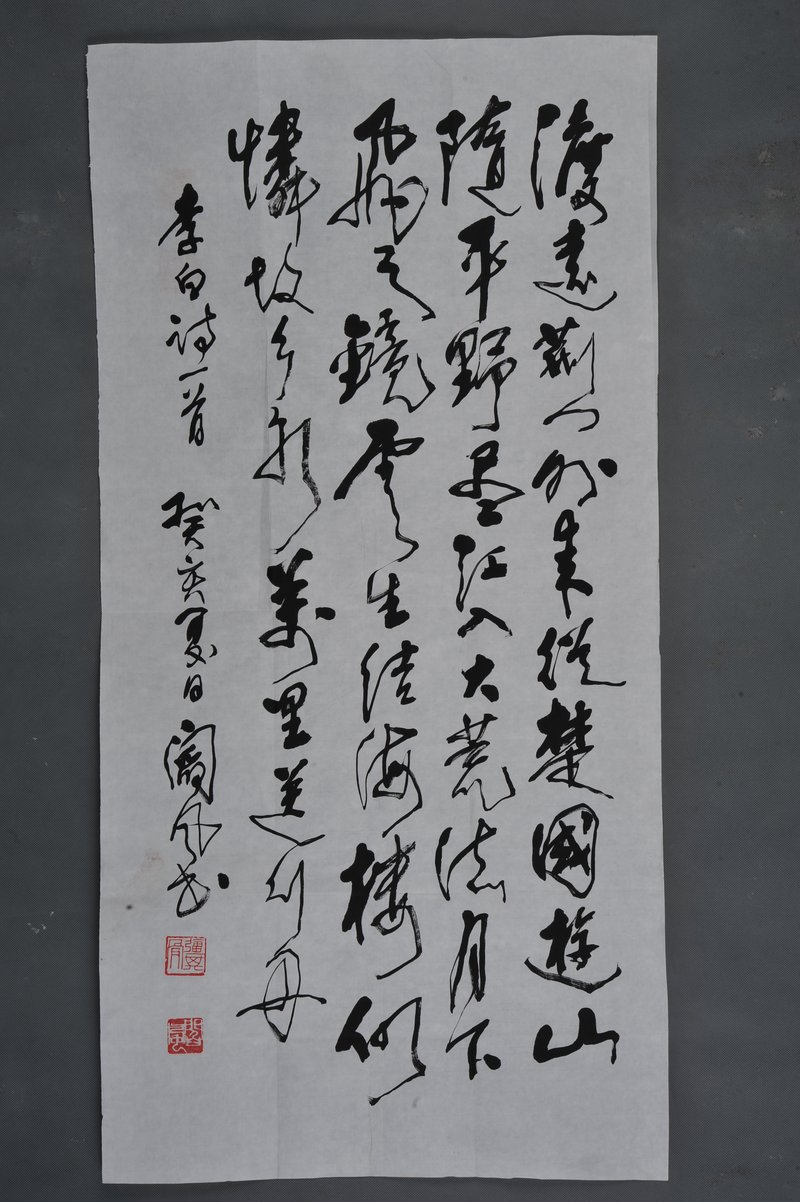 渡遠荊门外来從楚國遊山
隨平野盡江入大荒流月下
飛天鏡雲生结海樓仍
憐故乡水萬里送行舟
李白诗一首 癸亥夏日 閻风书